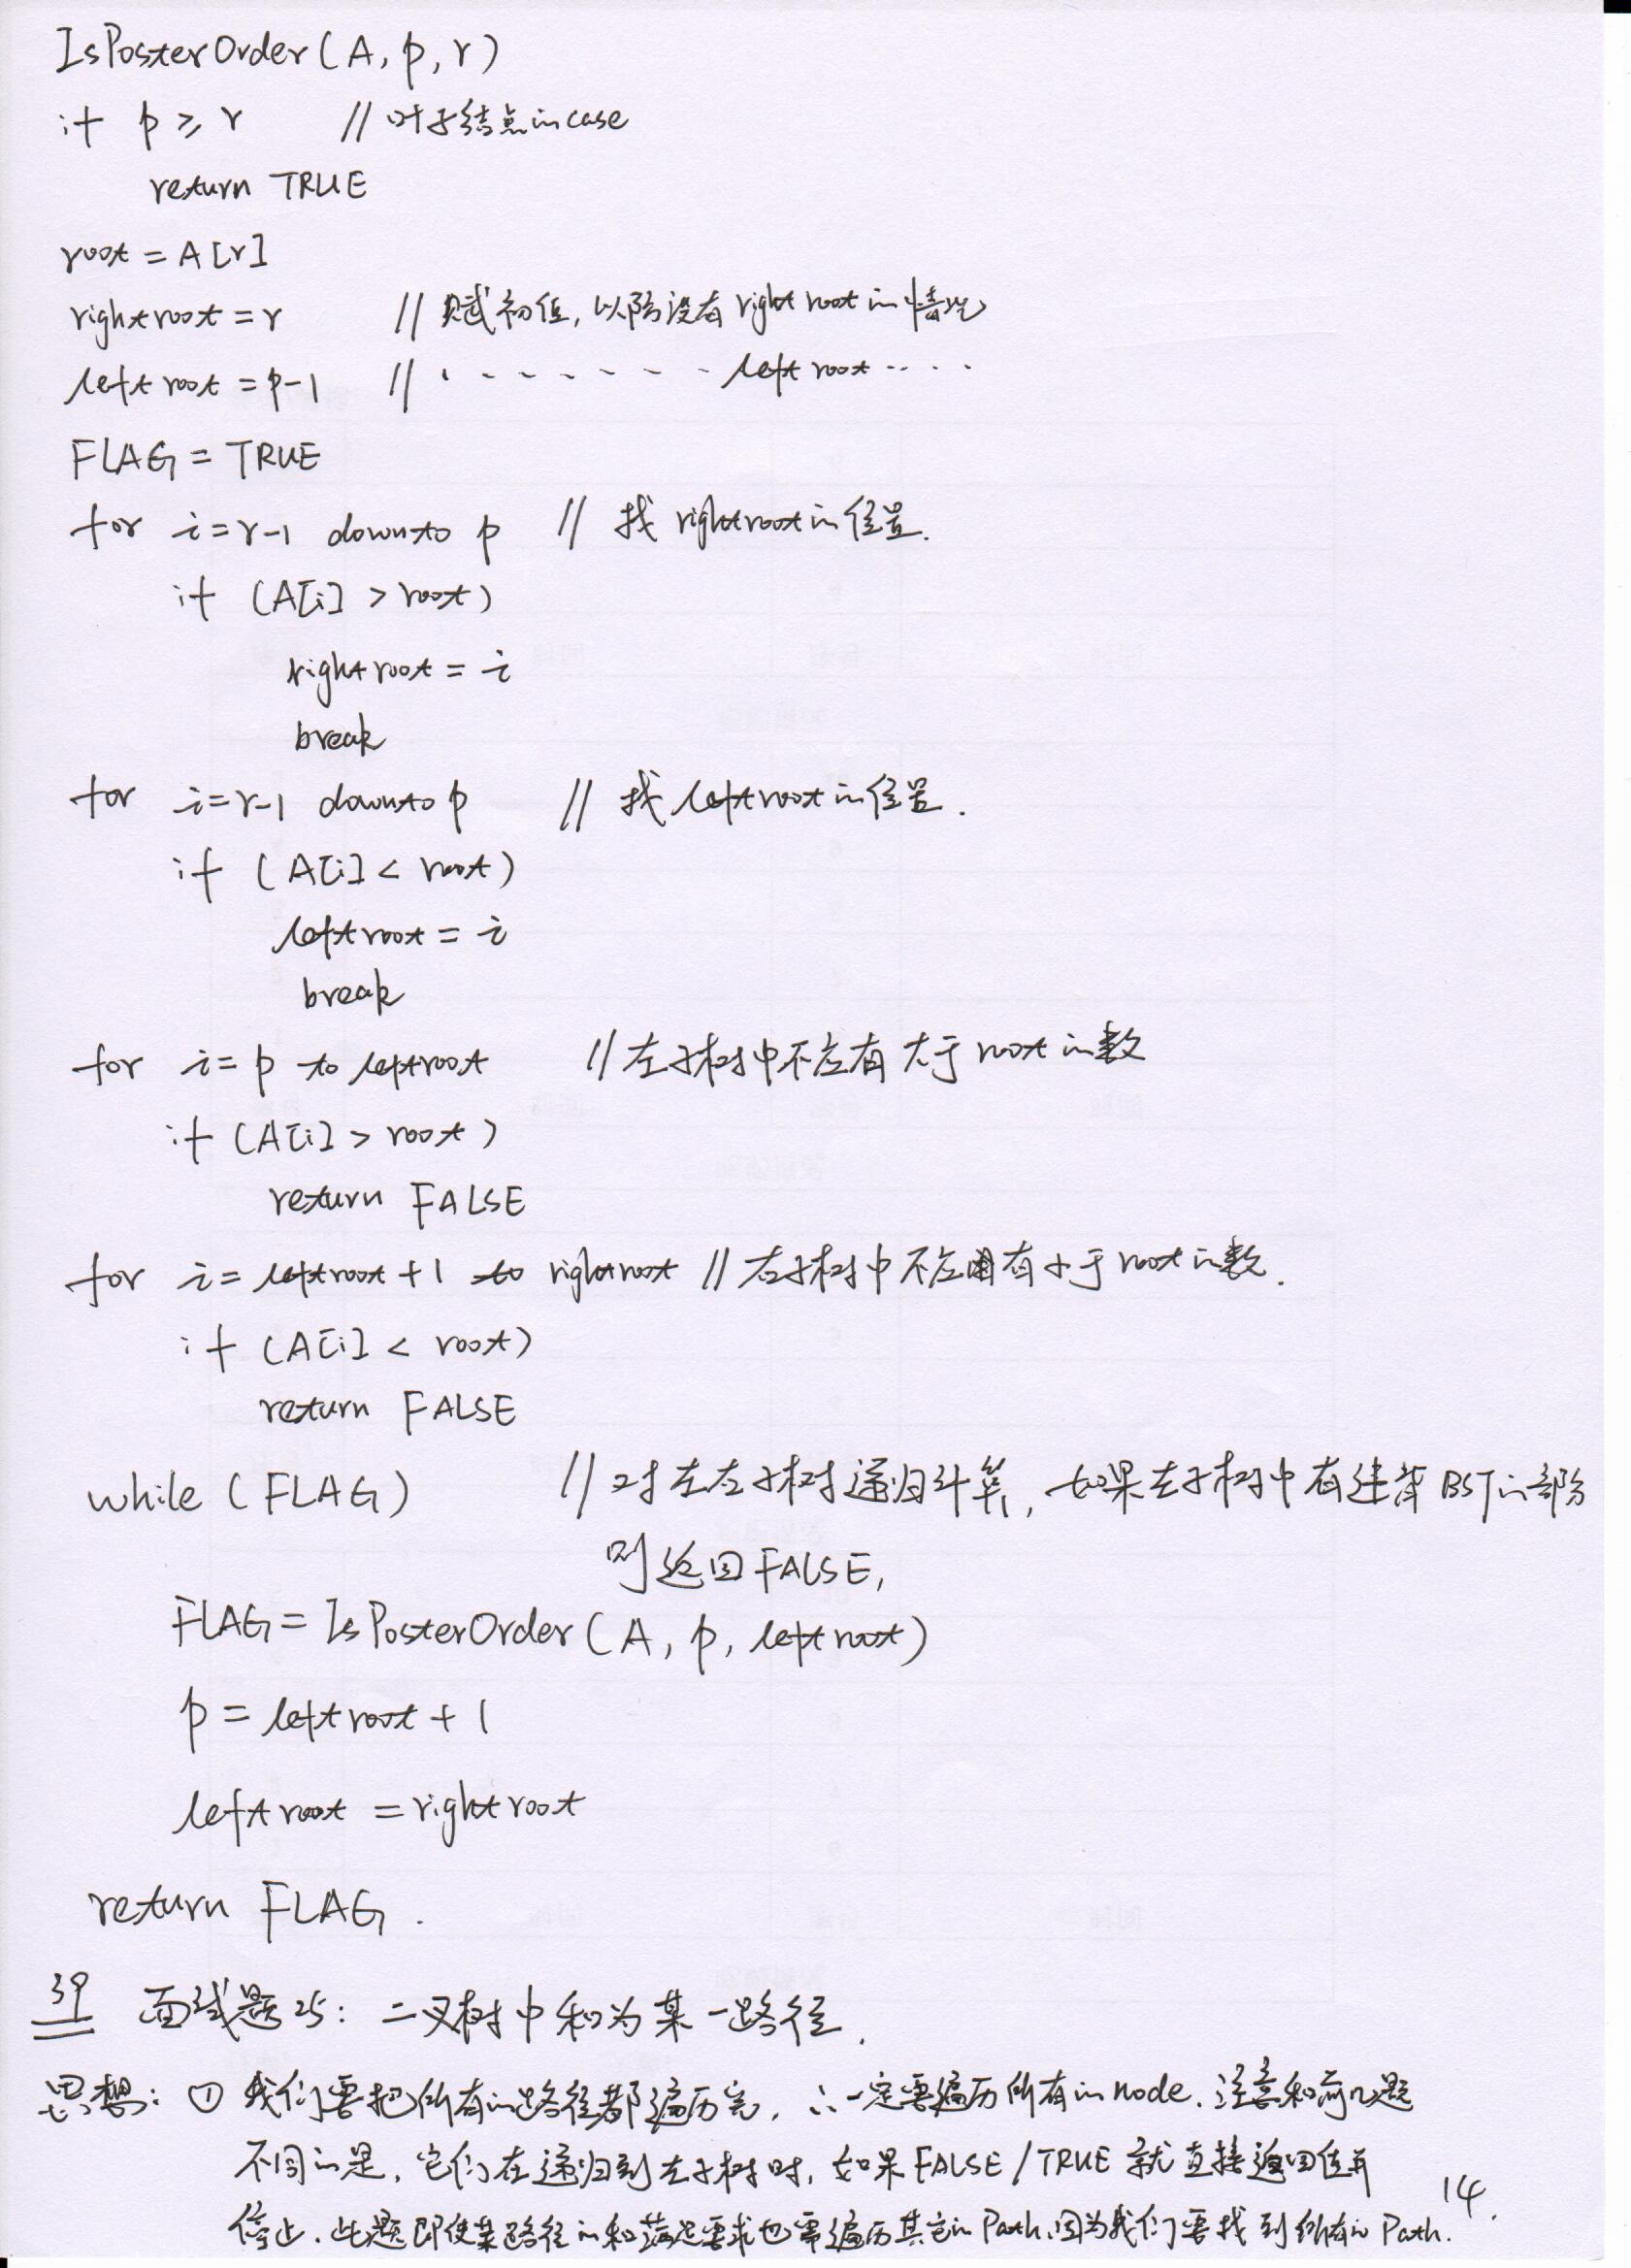 IsPosterOrder(A, p, r)
if p ≥ r // 叶子结点的case
return TRUE
root = A[r]
rightroot = r // 赋初值, 以防没有right root的情况
leftroot = p-1 // · - - - - - - left root ····
FLAG = TRUE
for i=r-1 downto p // 找 rightroot的位置.
if (A[i] > root)
rightroot = i
break
for i=r-1 downto p // 找 leftroot的位置.
if (A[i] < root)
leftroot = i
break
for i= p to leftroot // 左子树中不应有大于root的数
if (A[i] > root)
return FALSE
for i= leftroot+1 to rightroot // 右子树中不应有小于root的数.
if (A[i] < root)
return FALSE
while (FLAG) // 对左右子树递归计算, 如果左子树中有违背BST的部分
则返回FALSE,
FLAG= IsPosterOrder(A, p, leftroot)
p = leftroot + 1
leftroot = rightroot
return FLAG.
39 面试题25: 二叉树中和为某一路径.
思想: ① 我们要把所有的路径都遍历完, ∴一定要遍历所有的node. 注意和前几题
不同的是, 它们在递归到左子树时, 如果FALSE/TRUE 就直接返回值并
停止. 此题即使某路径的和满足要求也需遍历其它的Path, 因为我们要找到所有的Path.
14.